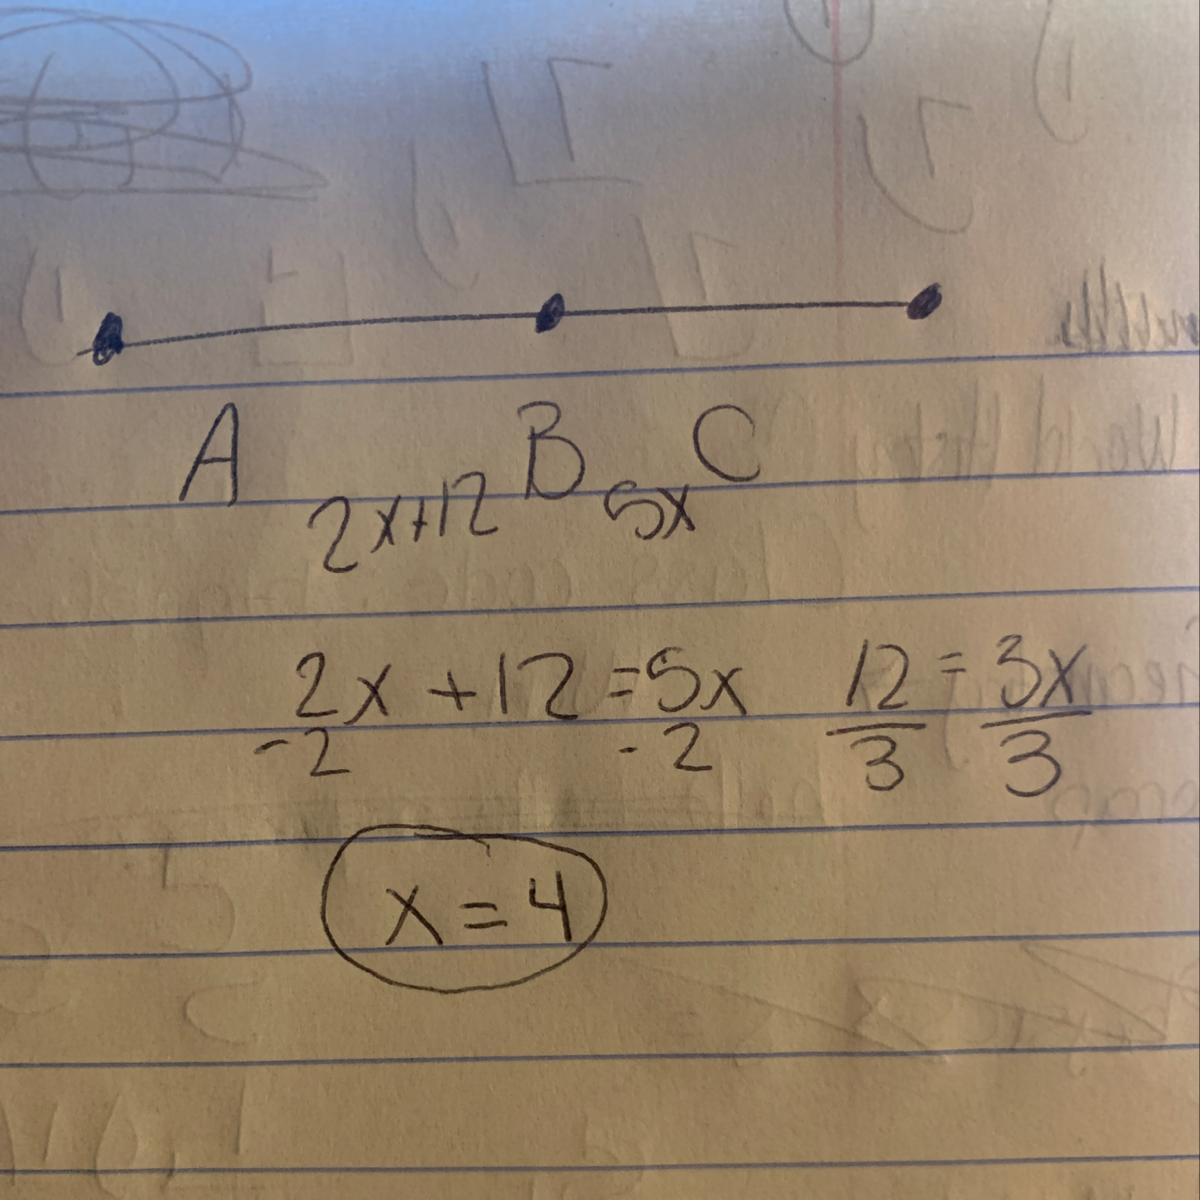 A B C
2x+12 5x
2x +12 =5x 12 = 3x
-2 -2 3 3
x = 4